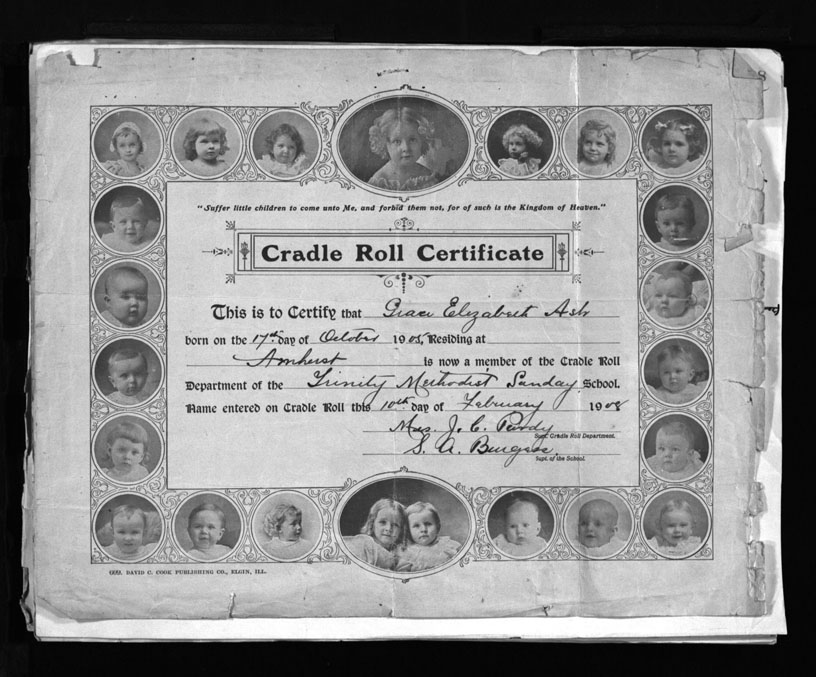 "Suffer little children to come unto Me, and forbid them not, for of such is the Kingdom of Heaven."
Cradle Roll Certificate
This is to Certify that Grace Elizabeth Ash
born on the 17th day of October 1905, Residing at
Amherst is now a member of the Cradle Roll
Department of the Trinity Methodist Sunday School.
Name entered on Cradle Roll this 10th day of February 1908
Mrs. J. C. Purdy
Supt. Cradle Roll Department.
S. A. Burgess
Supt. of the School.
DAVID C. COOK PUBLISHING CO., ELGIN, ILL.